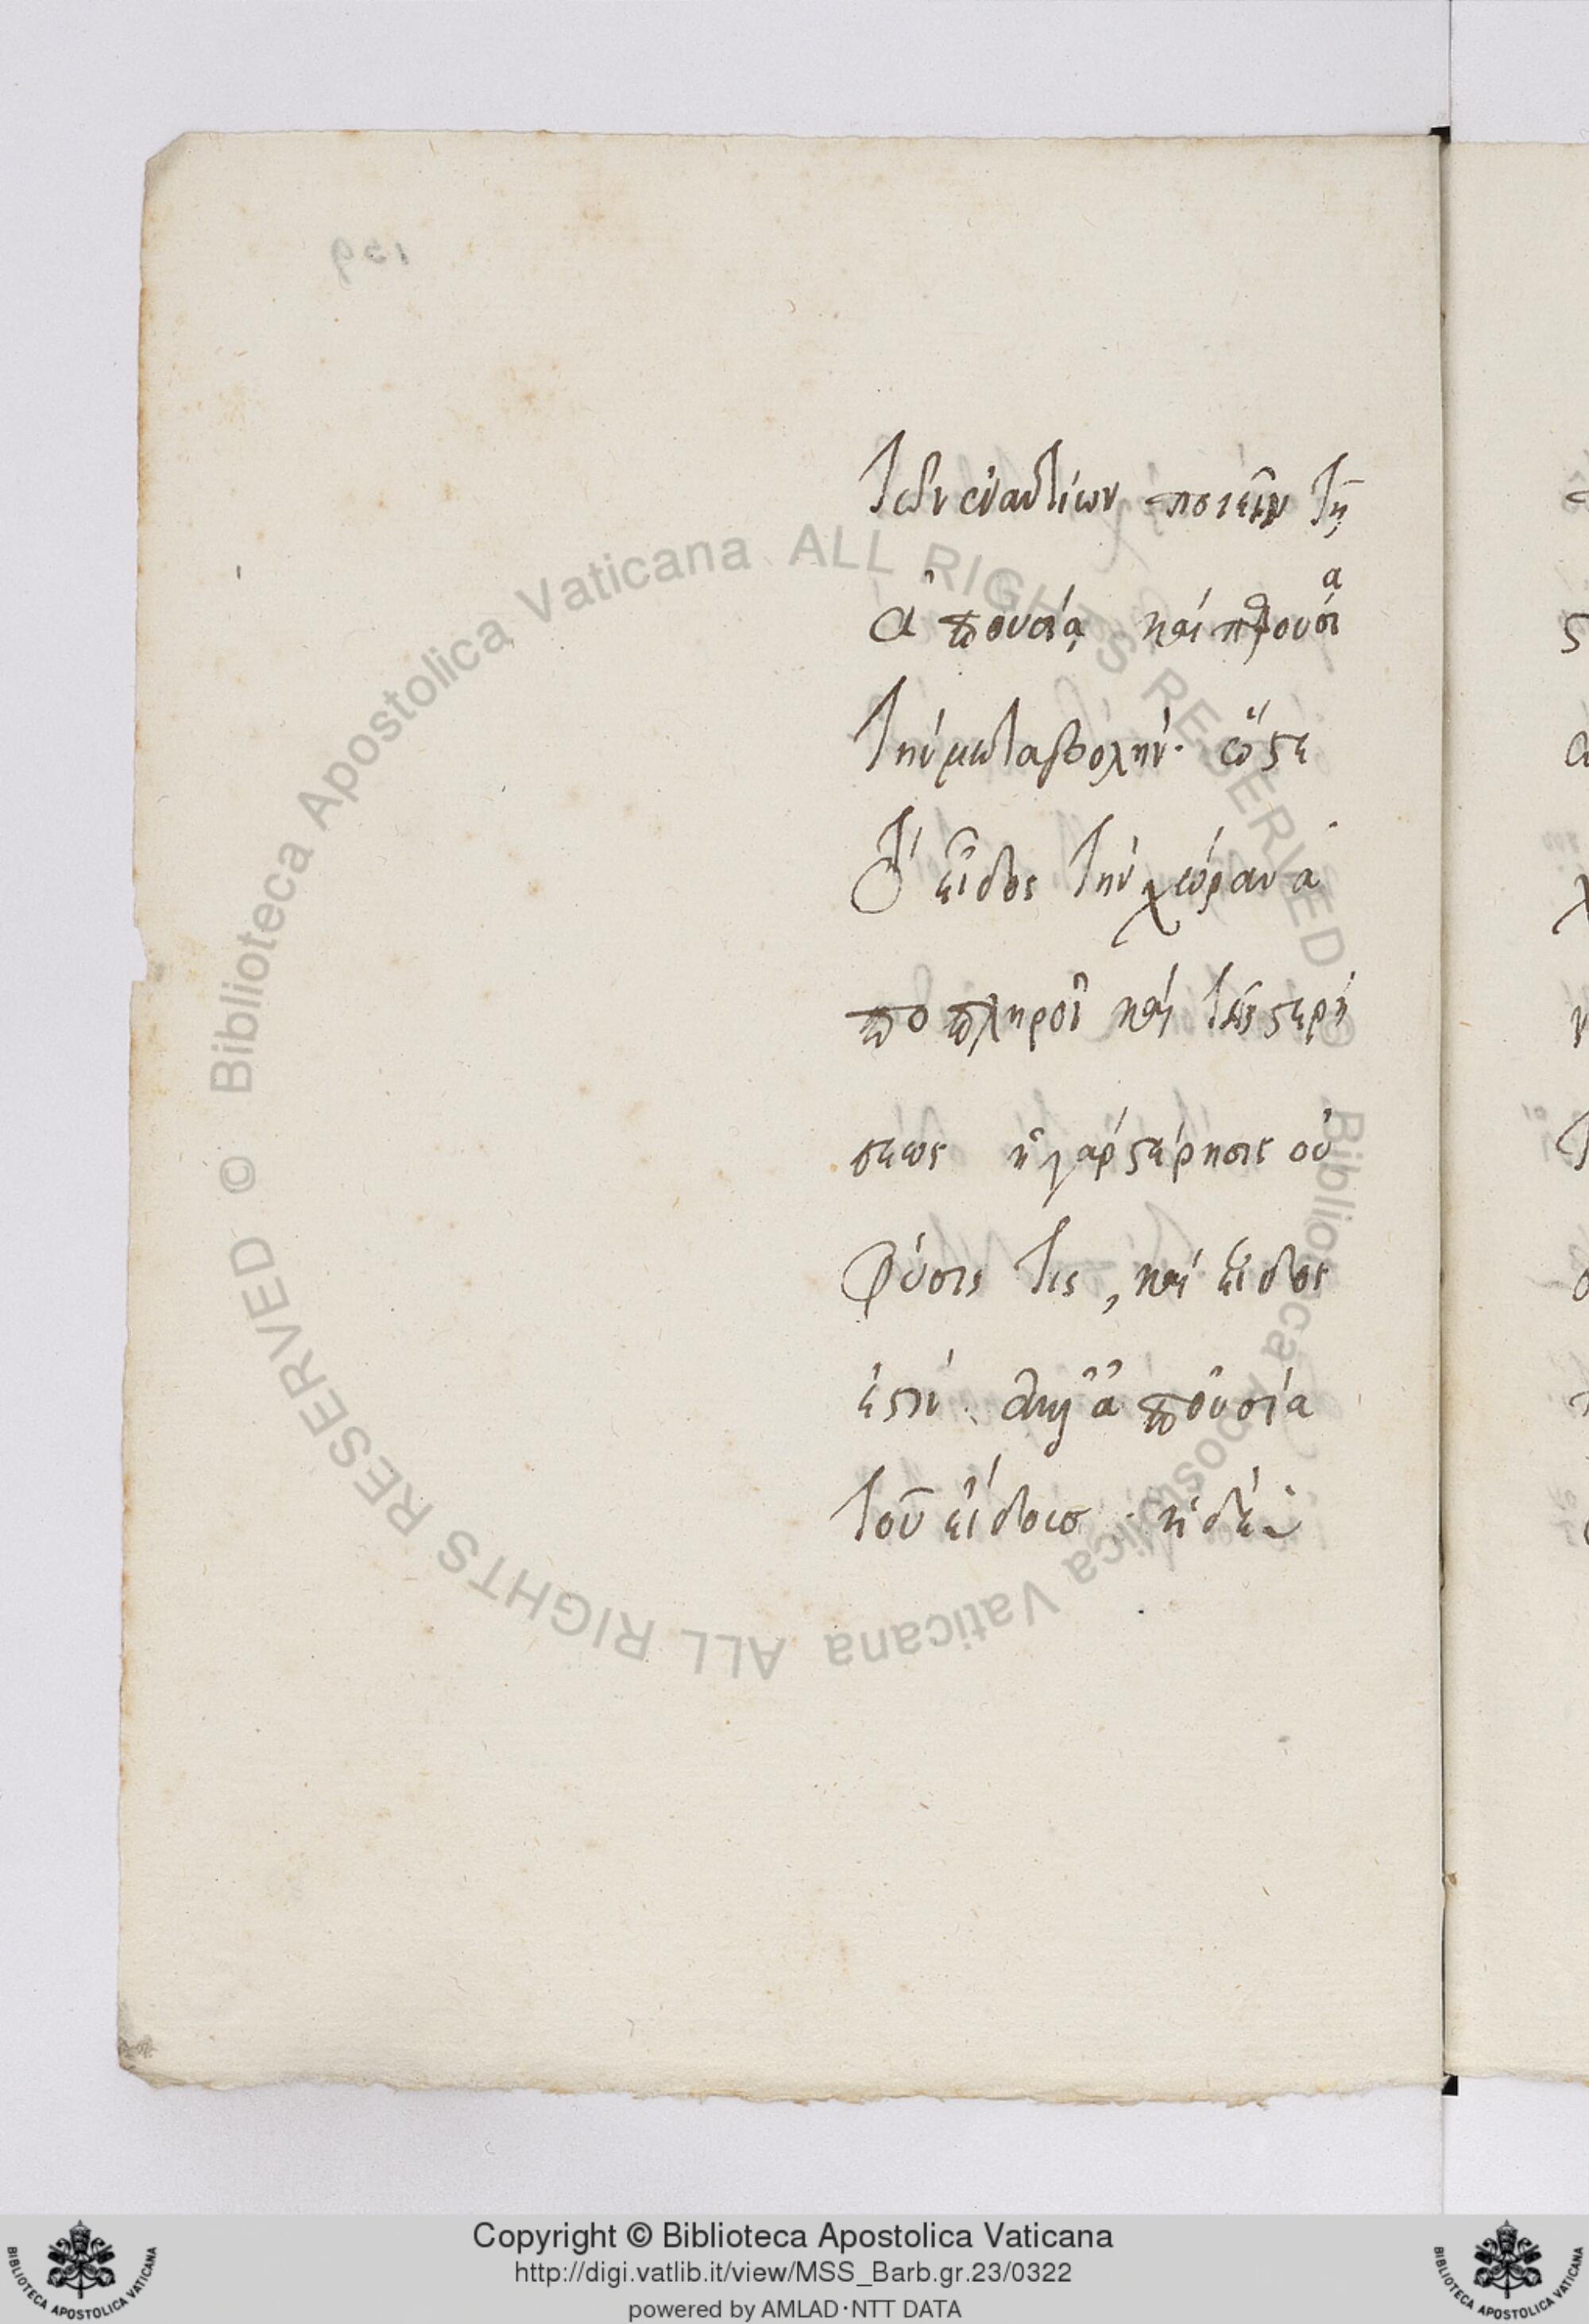 139
τῶν ἐναντίων ποιεῖν τῆ
ἀπουσία καὶ παρουσία
τὴν μεταβολήν. ὥστε
τὸ εἶδος τὴν χώραν ἀ
ποπληροῖ καὶ τῆς στερή
σεως ἡ γὰρ στέρησις οὐ
φύσις τις, καὶ εἶδος
ἐστὶν. ἀλλ' ἀπουσία
τοῦ εἴδους. ἡ δὲ
© Biblioteca Apostolica Vaticana ALL RIGHTS RESERVED
© Biblioteca Apostolica Vaticana ALL RIGHTS RESERVED
Copyright © Biblioteca Apostolica Vaticana
http://digi.vatlib.it/view/MSS_Barb.gr.23/0322
powered by AMLAD·NTT DATA
BIBLIOTECA APOSTOLICA VATICANA
BIBLIOTECA APOSTOLICA VATICANA